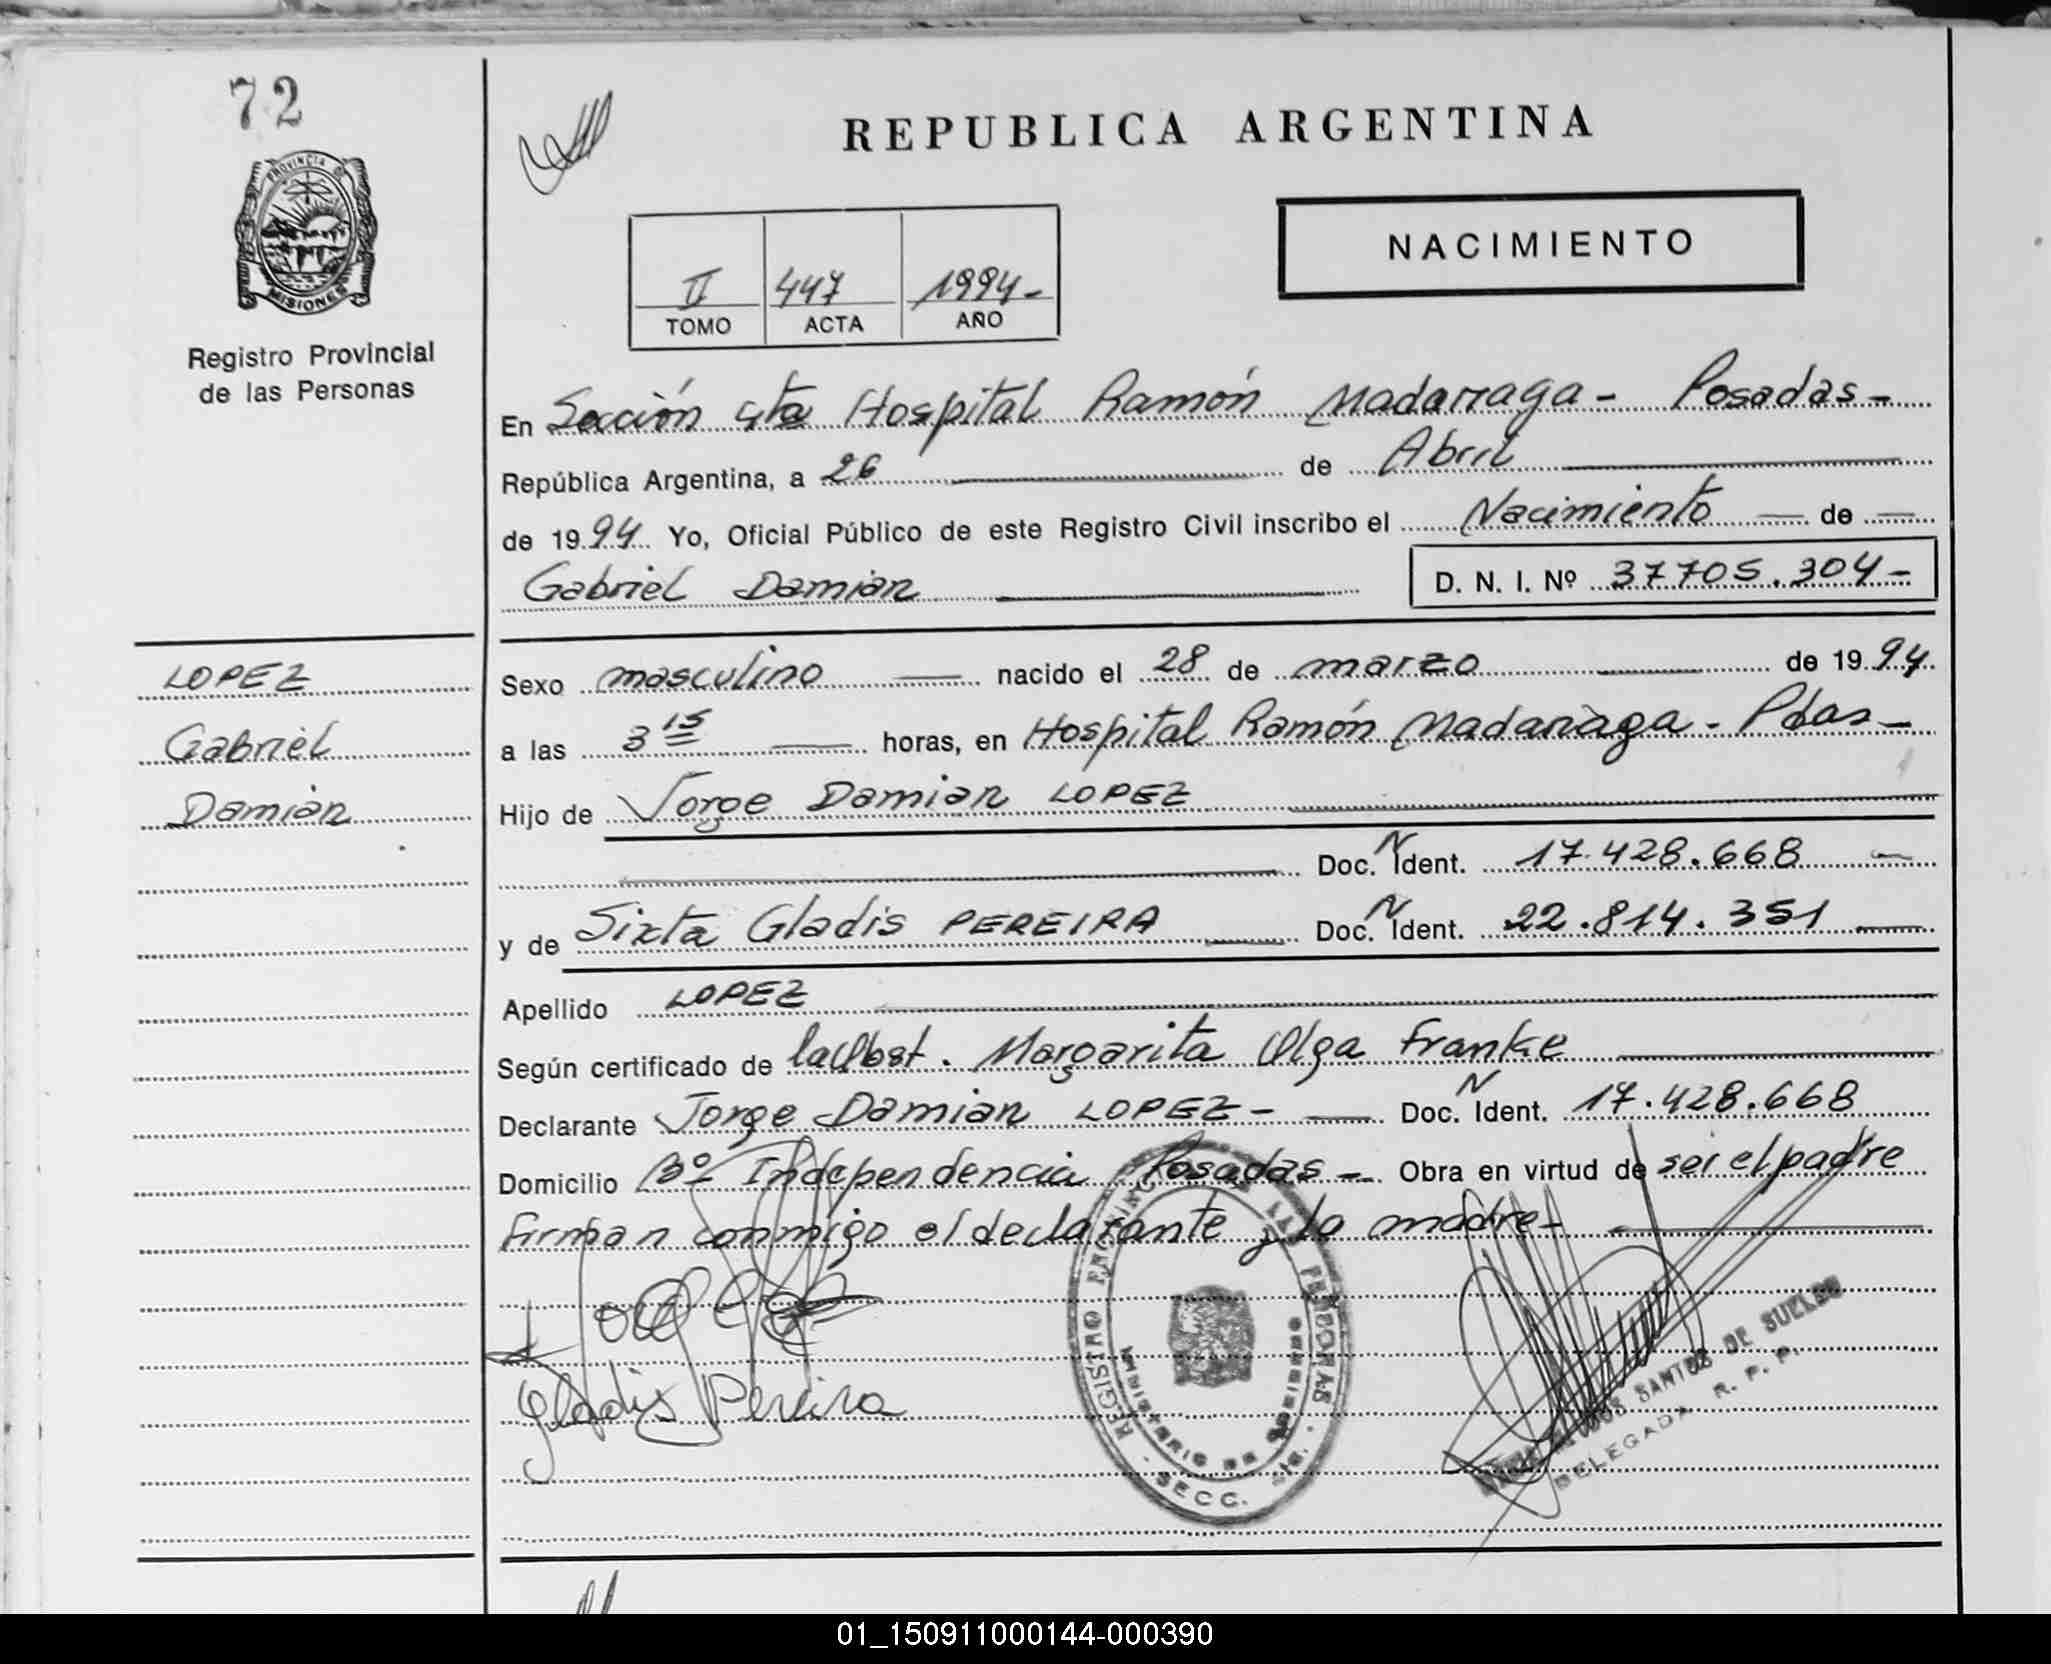 72
PROVINCIA DE
MISIONES
Registro Provincial
de las Personas
REPUBLICA ARGENTINA
NACIMIENTO
II 447 1994-
TOMO ACTA AÑO
En Sección 4ta Hospital Ramón Madarraga - Posadas -
República Argentina, a 26 de Abril
de 1994 Yo, Oficial Público de este Registro Civil inscribo el Nacimiento de
Gabriel Damián D. N. I. Nº 37705.304-
LOPEZ
Gabriel
Damián
Sexo masculino nacido el 28 de marzo de 1994
a las 3 15 horas, en Hospital Ramón Madariaga - Pdas -
Hijo de Jorge Damian LOPEZ
Doc. N Ident. 17.428.668
y de Sixta Gladis PEREIRA Doc. N Ident. 22.814.351
Apellido LOPEZ
Según certificado de la Obst. Margarita Olga Franke
Declarante Jorge Damian LOPEZ - Doc. N Ident. 17.428.668
Domicilio Bº Independencia Posadas - Obra en virtud de ser el padre
firman conmigo el declarante y la madre -
Gladis Pereira
REGISTRO PROVINCIAL DE LAS PERSONAS
MINISTERIO DE GOBIERNO
SECC.
SANTOS DE
DELEGADA R. P. P.
01_150911000144-000390